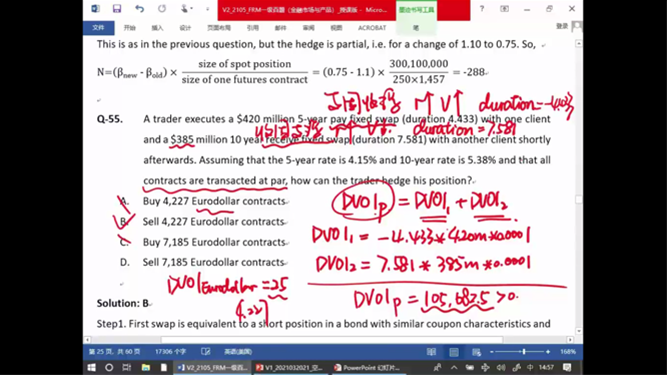 V2_2105_FRM一级百题（金融市场与产品）_授课版 - Microsoft Word
墨迹书写工具
文件 开始 插入 页面布局 引用 邮件 审阅 视图 ACROBAT 笔 登录
This is as in the previous question, but the hedge is partial, i.e. for a change of 1.10 to 0.75. So,
N=(βnew - βold) × size of spot position / size of one futures contract = (0.75 - 1.1) × 300,100,000 / 250×1,457 = -288
r↑ V↑ duration=-4.433
Q-55. A trader executes a $420 million 5-year pay fixed swap (duration 4.433) with one client
duration=7.581
and a $385 million 10 year receive fixed swap (duration 7.581) with another client shortly
afterwards. Assuming that the 5-year rate is 4.15% and 10-year rate is 5.38% and that all
contracts are transacted at par, how can the trader hedge his position?
A. Buy 4,227 Eurodollar contracts
B. Sell 4,227 Eurodollar contracts
C. Buy 7,185 Eurodollar contracts
D. Sell 7,185 Eurodollar contracts
DV01p = DV01₁ + DV01₂
DV01₁ = -4.433*420m*0.0001
DV01₂ = 7.581*385m*0.0001
DV01p = 105,682.5 >0.
DV01Eurodollar = 25
Solution: B
Step1. First swap is equivalent to a short position in a bond with similar coupon characteristics and
第 25 页，共 60 页 17306 个字 英语(美国) 168%
V2_2021032021_... V1_2021032021_空... PowerPoint 幻灯片... 中 14:57